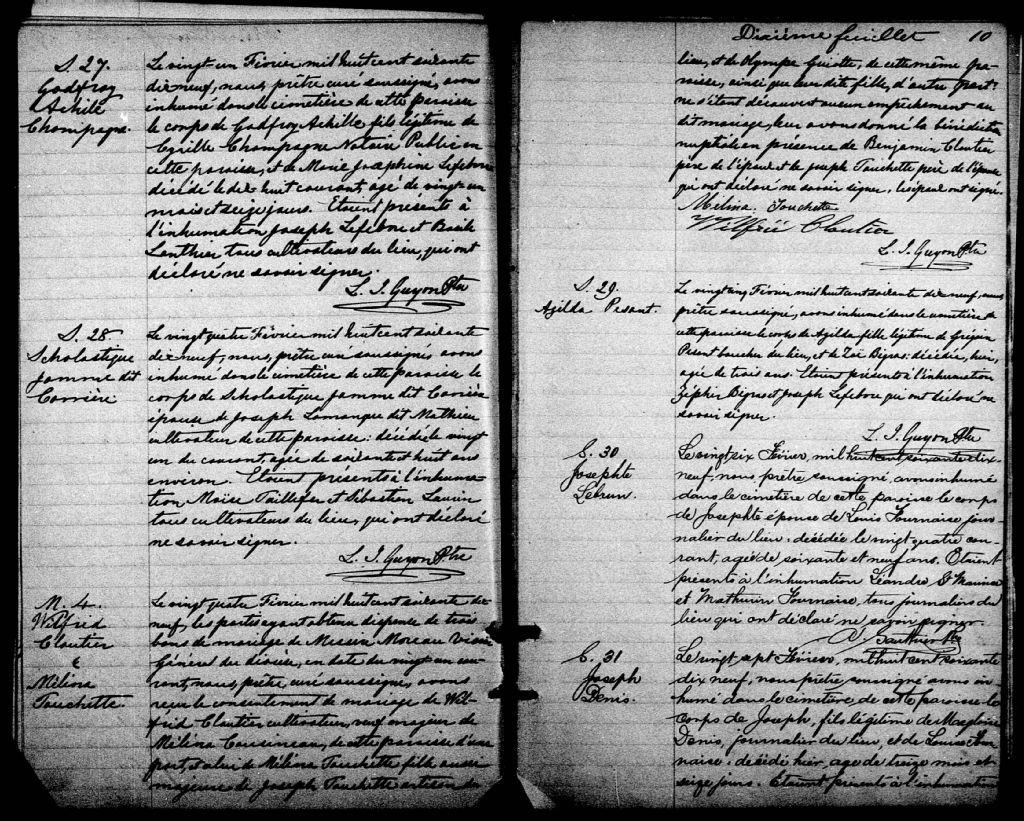 S. 27.
Godfroy
Achille
Champagne.
Le vingt un Février mil huit cent soixante
dix neuf, nous, prêtre curé soussigné, avons
inhumé dans le cimetière de cette paroisse
le corps de Godfroy Achille, fils légitime de
Cyrille Champagne Notaire Public en
cette paroisse, et de Marie Joséphine Lefebvre
décédé le dix huit courant, agé de vingt un
mois et seize jours. Etaient présents à
l'inhumation Joseph Lefebvre et Basile
Lanthier tous cultivateurs du lieu, qui ont
déclaré ne savoir signer.
L. I. Guyon Ptre
S. 28.
Scholastique
Jamme dit
Carrière
Le vingt quatre Février mil huit cent soixante
dix neuf, nous, prêtre curé soussigné, avons
inhumé dans le cimetière de cette paroisse le
corps de Scholastique Jamme dit Carrière
épouse de Joseph Lamarque dit Mathieu
cultivateur de cette paroisse: décédée le vingt
un du courant, agée de soixante et huit ans
environ. Etaient présents à l'inhuma-
tion Moïse Taillefer et Sébastien Laurin
tous cultivateurs du lieu, qui ont déclaré
ne savoir signer.
L. I. Guyon Ptre
M. 4.
Wilfred
Cloutier
&
Mélina
Touchette.
Le vingt quatre Février mil huit cent soixante dix
neuf, les parties ayant obtenu dispense de trois
bans de mariage de Messire Moreau Vicaire
Général du diocèse, en date du vingt un cou-
rant, nous, prêtre curé soussigné, avons
reçu le consentement de mariage de Wil-
frid Cloutier cultivateur, veuf majeur de
Mélina Cousineau, de cette paroisse d'une
part, et celui de Mélina Touchette fille aussi
majeure de Joseph Touchette artisan de
Dixième feuillet 10
lieu, et de Olympe Guiotte, de cette même pa-
roisse, ainsi que leur dite fille, d'autre part:
ne s'étant découvert aucun empêchement au
dit mariage, leur avons donné la bénédiction
nuptiale en présence de Benjamin Cloutier
père de l'époux et de Joseph Touchette père de l'épouse
qui ont déclaré ne savoir signer, les époux ont signé.
Mélina Touchette
Wilfrid Cloutier
L. I. Guyon Ptre
S. 29.
Azilda Pesant.
Le vingt cinq Février mil huit cent soixante dix neuf, nous
prêtre soussigné, avons inhumé dans le cimetière de
cette paroisse le corps de Azilda fille légitime de
Pesant boucher du lieu, et de Zoé Bigras: décédée, hier,
agée de trois ans. Etaient présents à l'inhumation
Zéphir Bigras et Joseph Lefebvre qui ont déclaré ne
savoir signer.
L. I. Guyon Ptre
S. 30
Josephte
Lebrun.
Le vingt six Février, mil huit cent soixante dix-
neuf, nous prêtre soussigné, avons inhumé
dans le cimetière de cette paroisse le corps
de Josephte épouse de Louis Fournaise, jour-
nalier du lieu: décédée le vingt quatre cou-
rant, agée de soixante et neuf ans. Etaient
présents à l'inhumation Léandre St Maurice
et Mathurin Fournaise, tous journaliers du
lieu qui ont déclaré ne savoir signer.
Gauthier Ptre
S. 31
Joseph
Denis.
Le vingt sept Février, mil huit cent soixante
dix neuf, nous prêtre soussigné avons in-
humé dans le cimetière, de cette paroisse le
corps de Joseph, fils légitime de Magloire
Denis, journalier du lieu, et de Louise Four-
naise: décédé hier, agé de treize mois et
seize jours. Etaient présents à l'inhumation